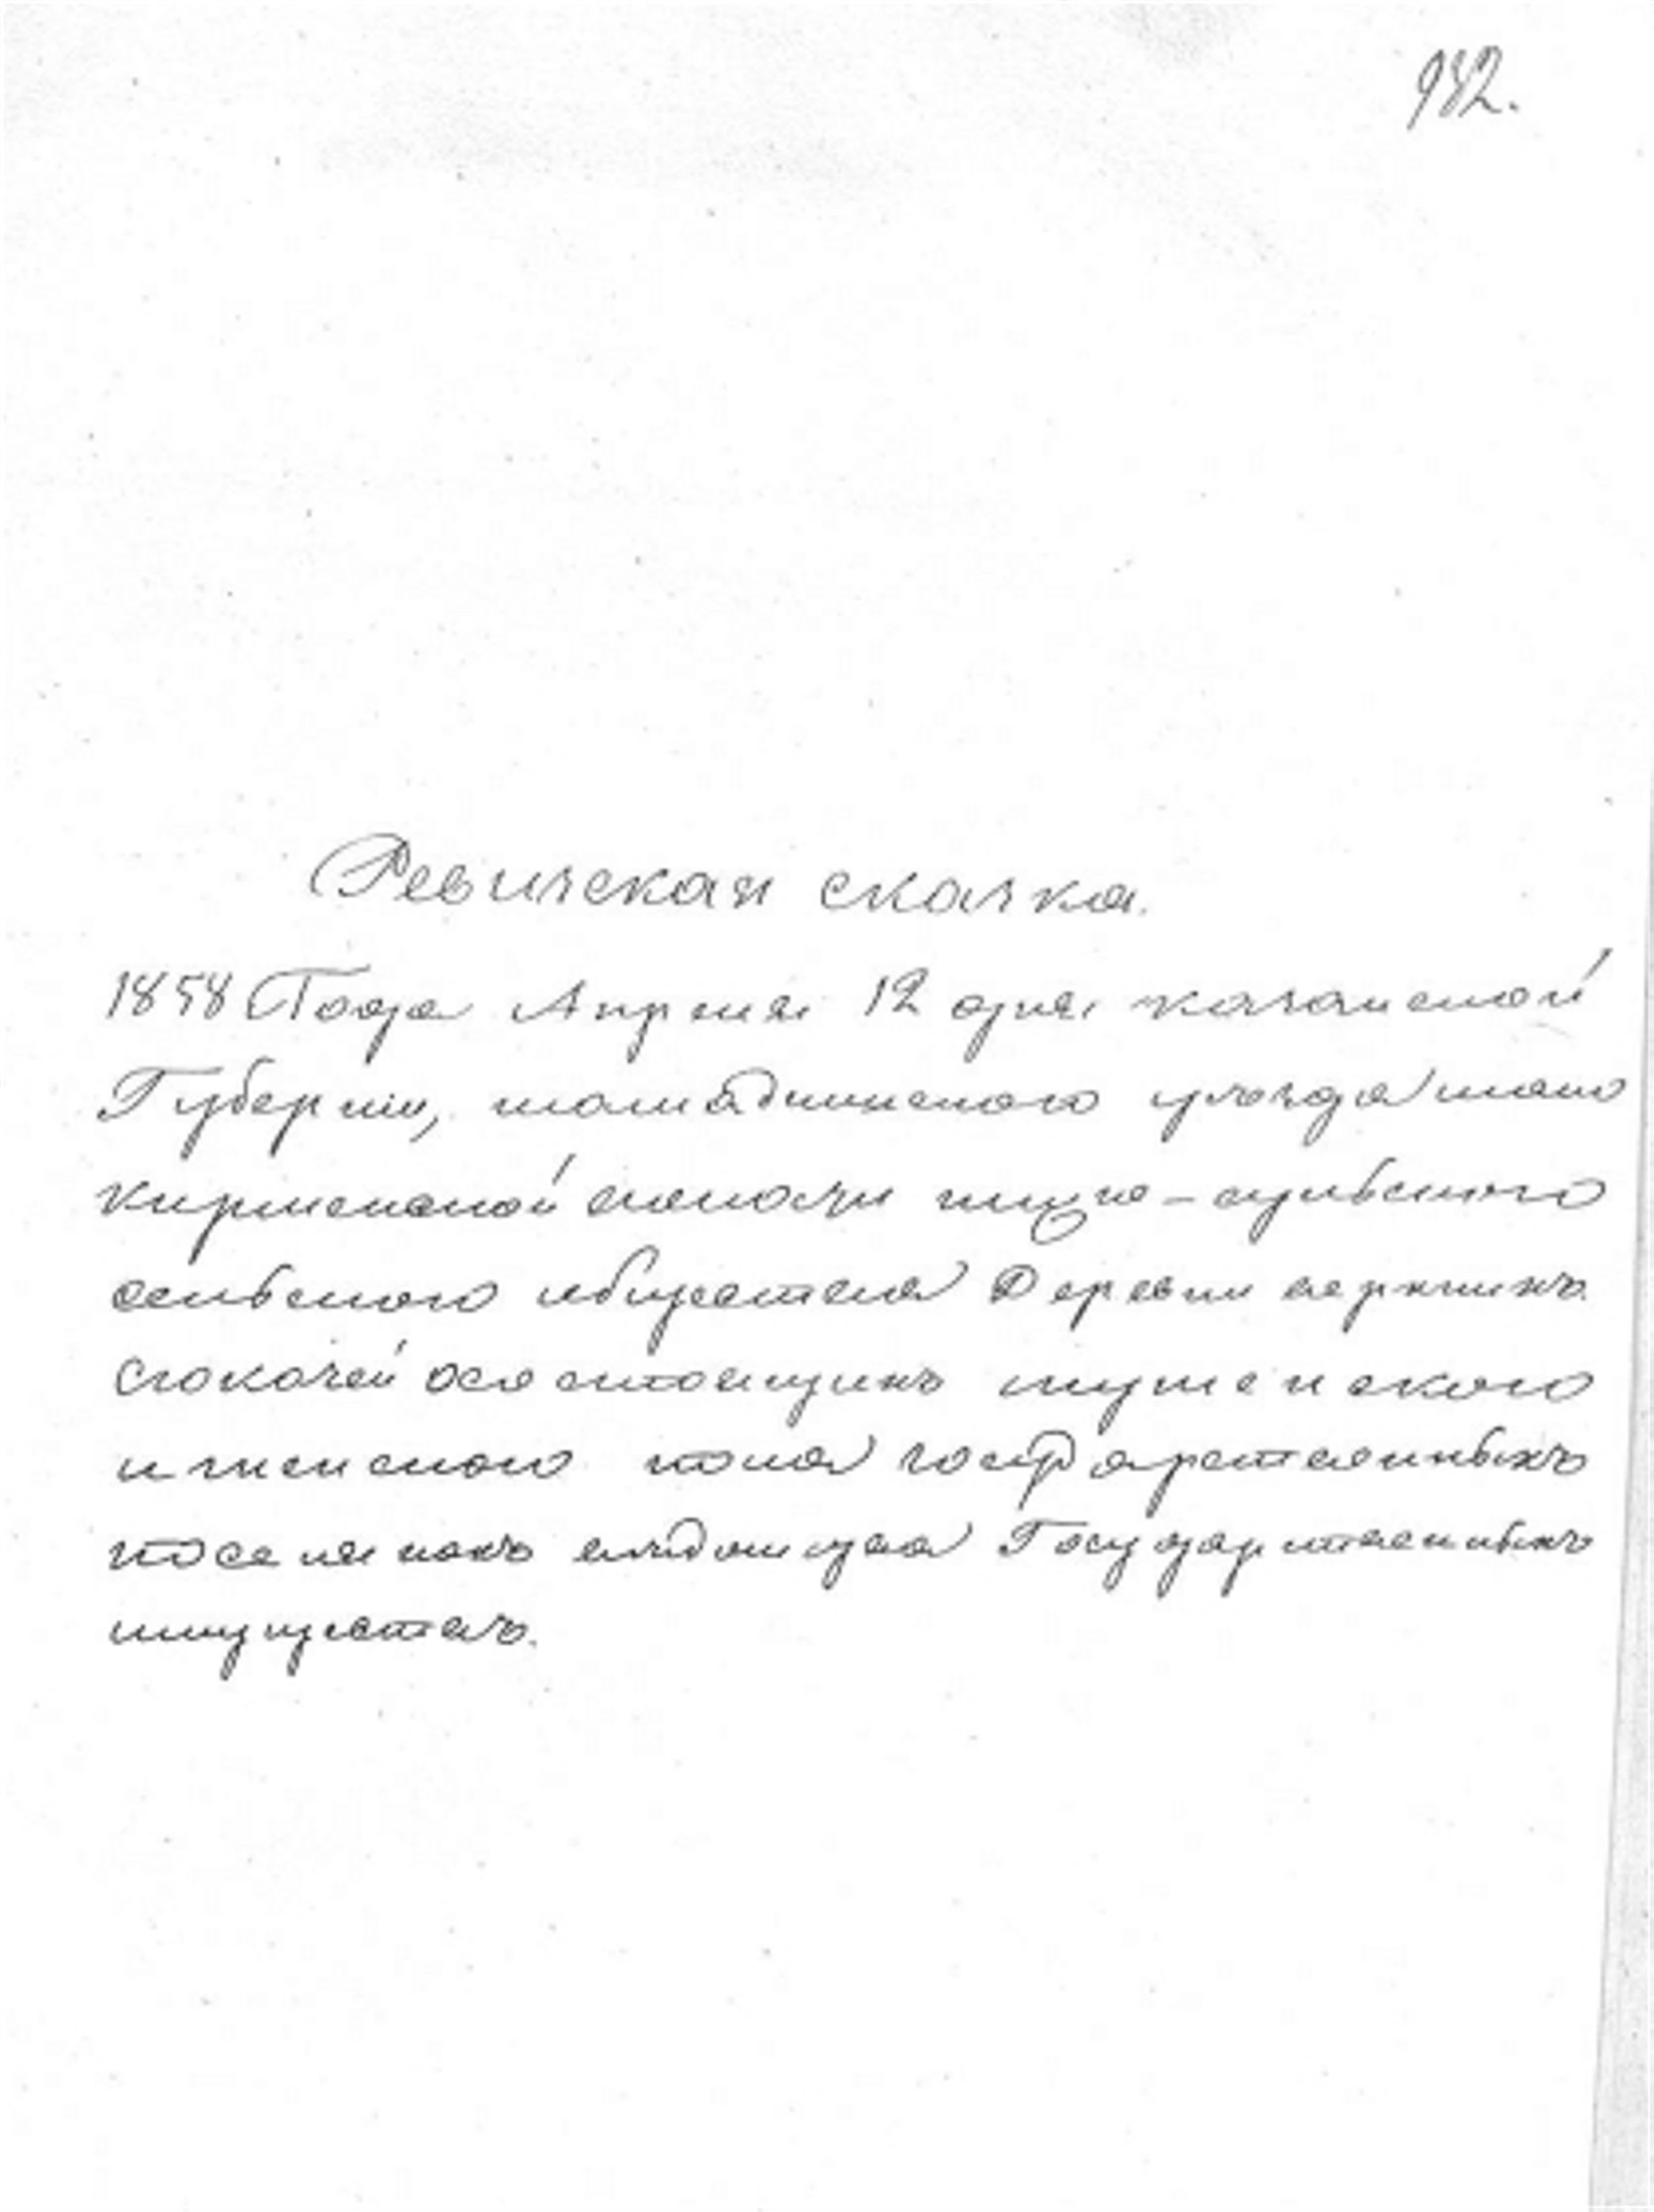 982.
Ревизская сказка.
1858 Года Апреля 12 дня казанской
Губернии, мамадышского уезда
кирменской волости
сельского общества Деревни верхнихъ
состоящихъ мужескаго
и женского пола государственныхъ
поселянъ ведомства Государственныхъ
имуществъ.